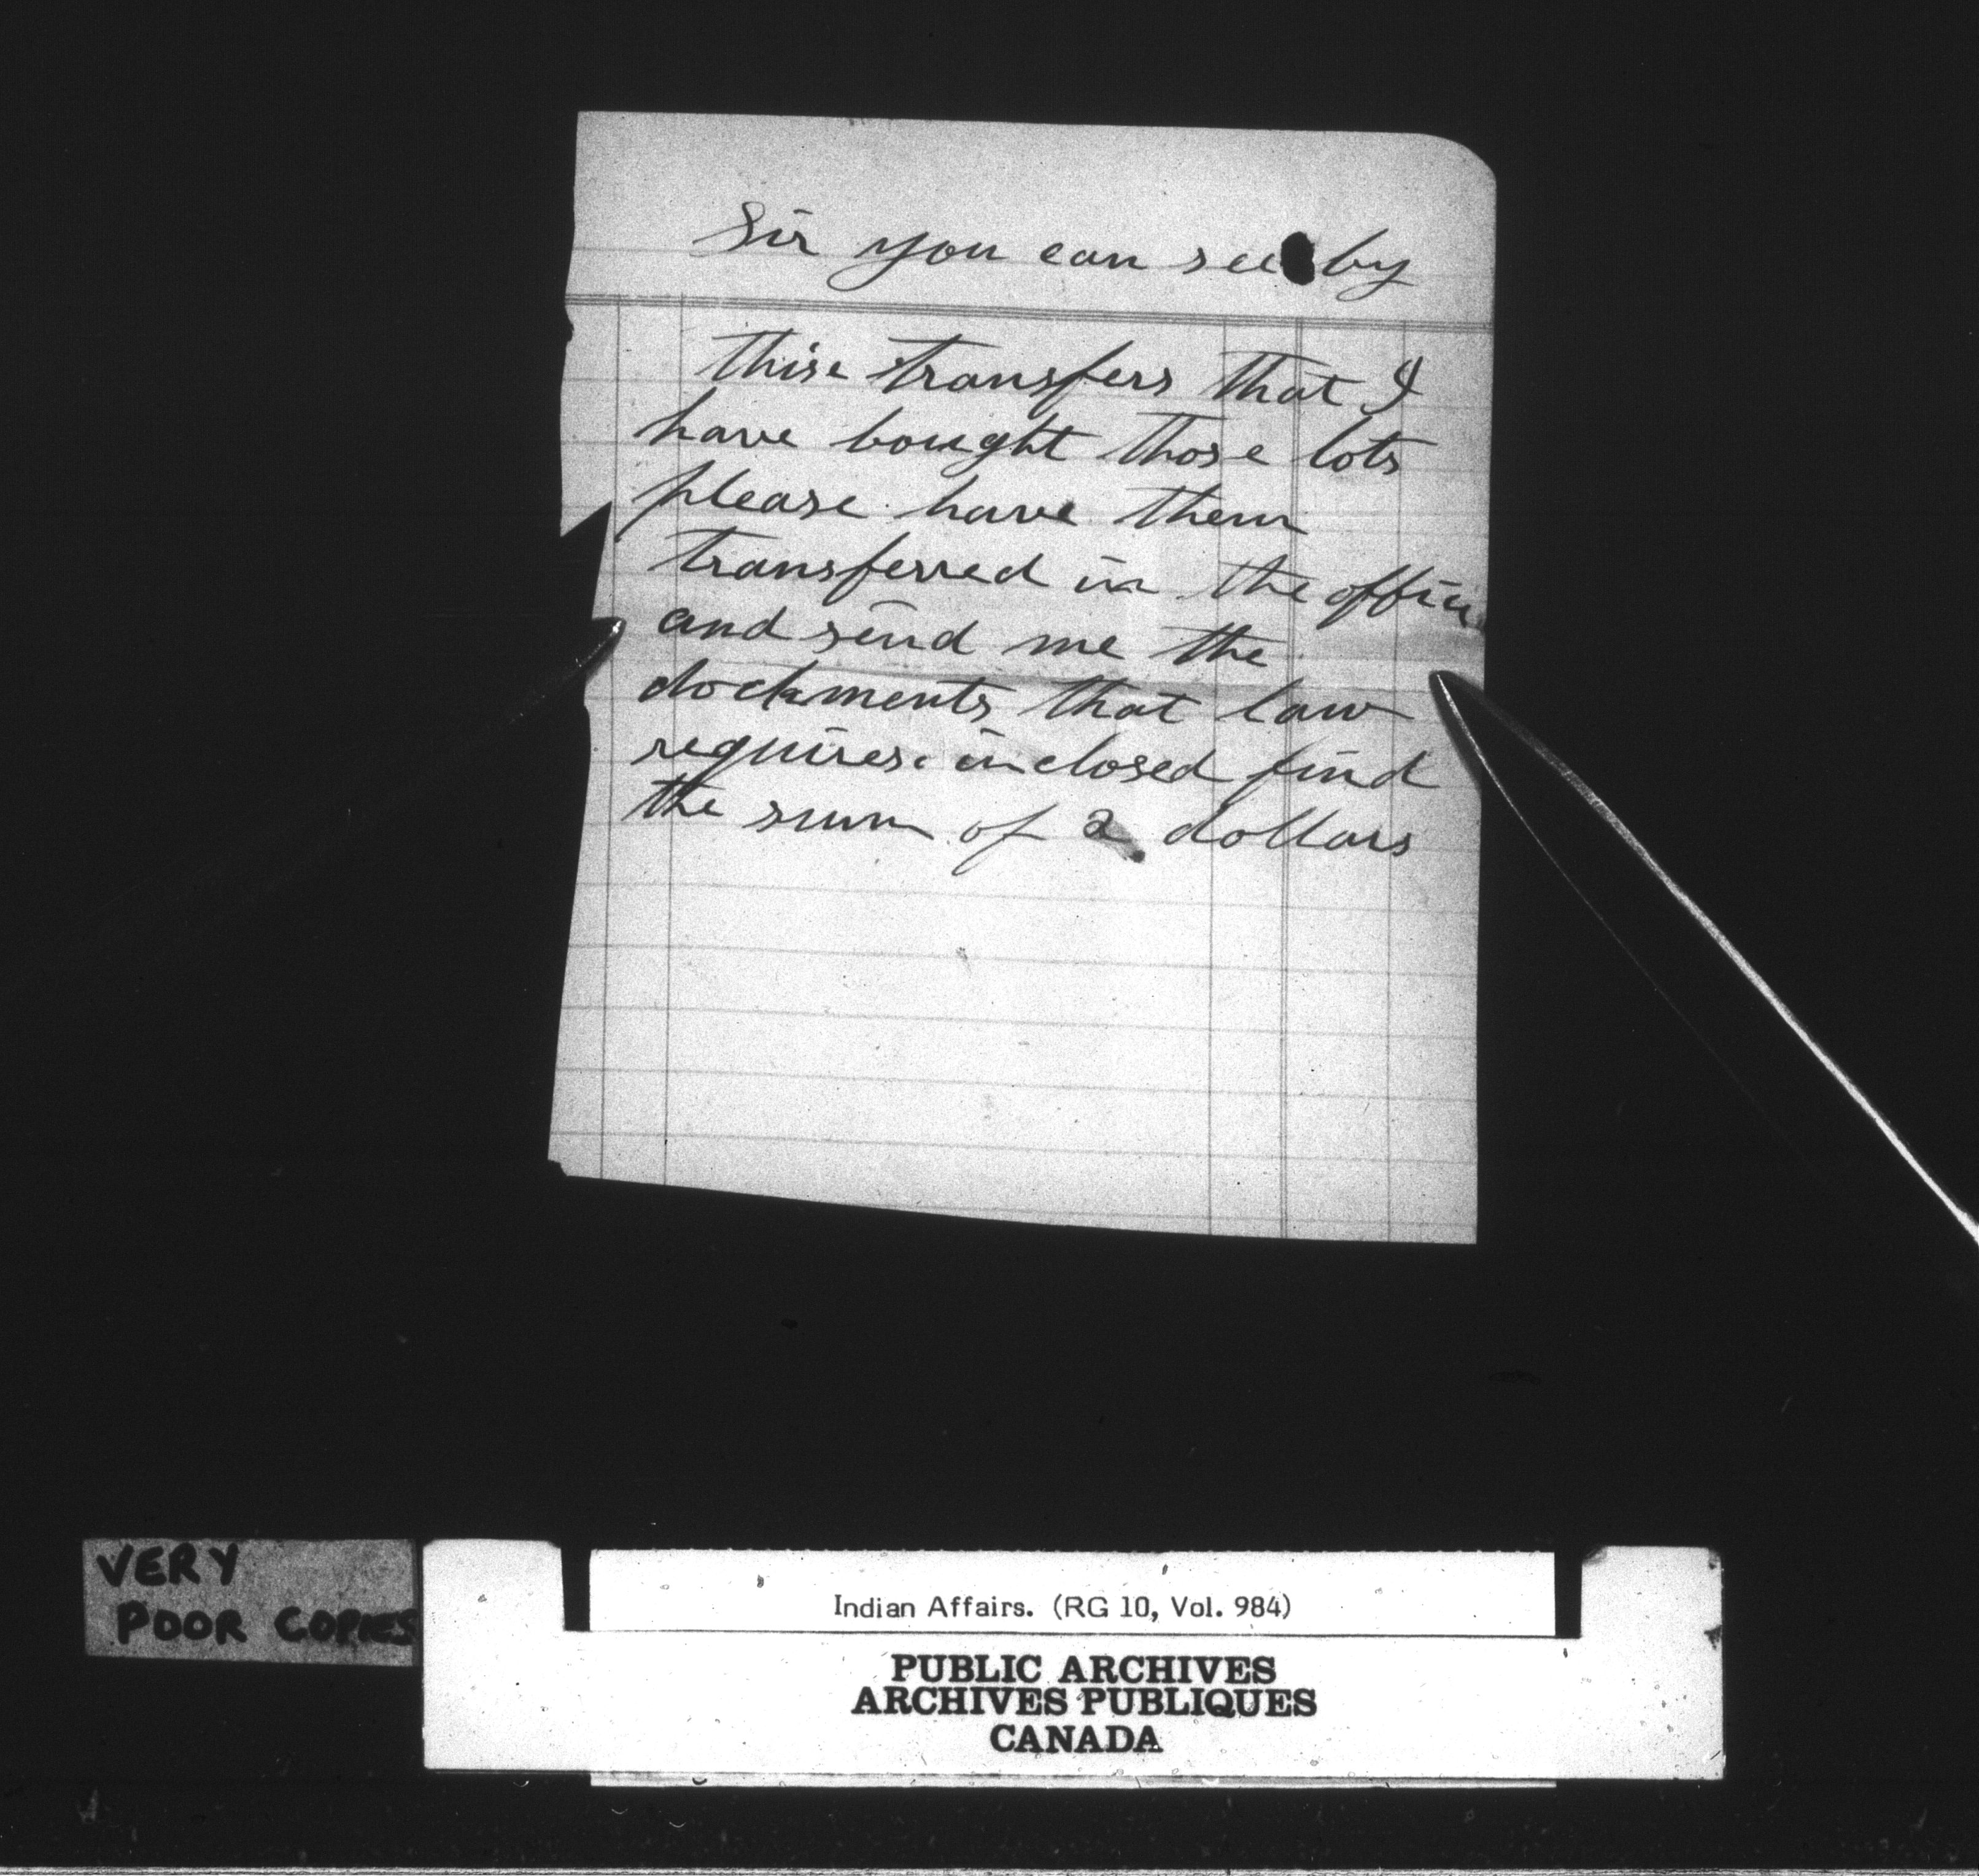 Sir you can see by
thise transfers that I
have bought those lots
please have them
transferred in the office
and send me the
dockments that law
requires. inclosed find
the sum of 2 dollars
VERY
POOR COPIES
Indian Affairs. (RG 10, Vol. 984)
PUBLIC ARCHIVES
ARCHIVES PUBLIQUES
CANADA